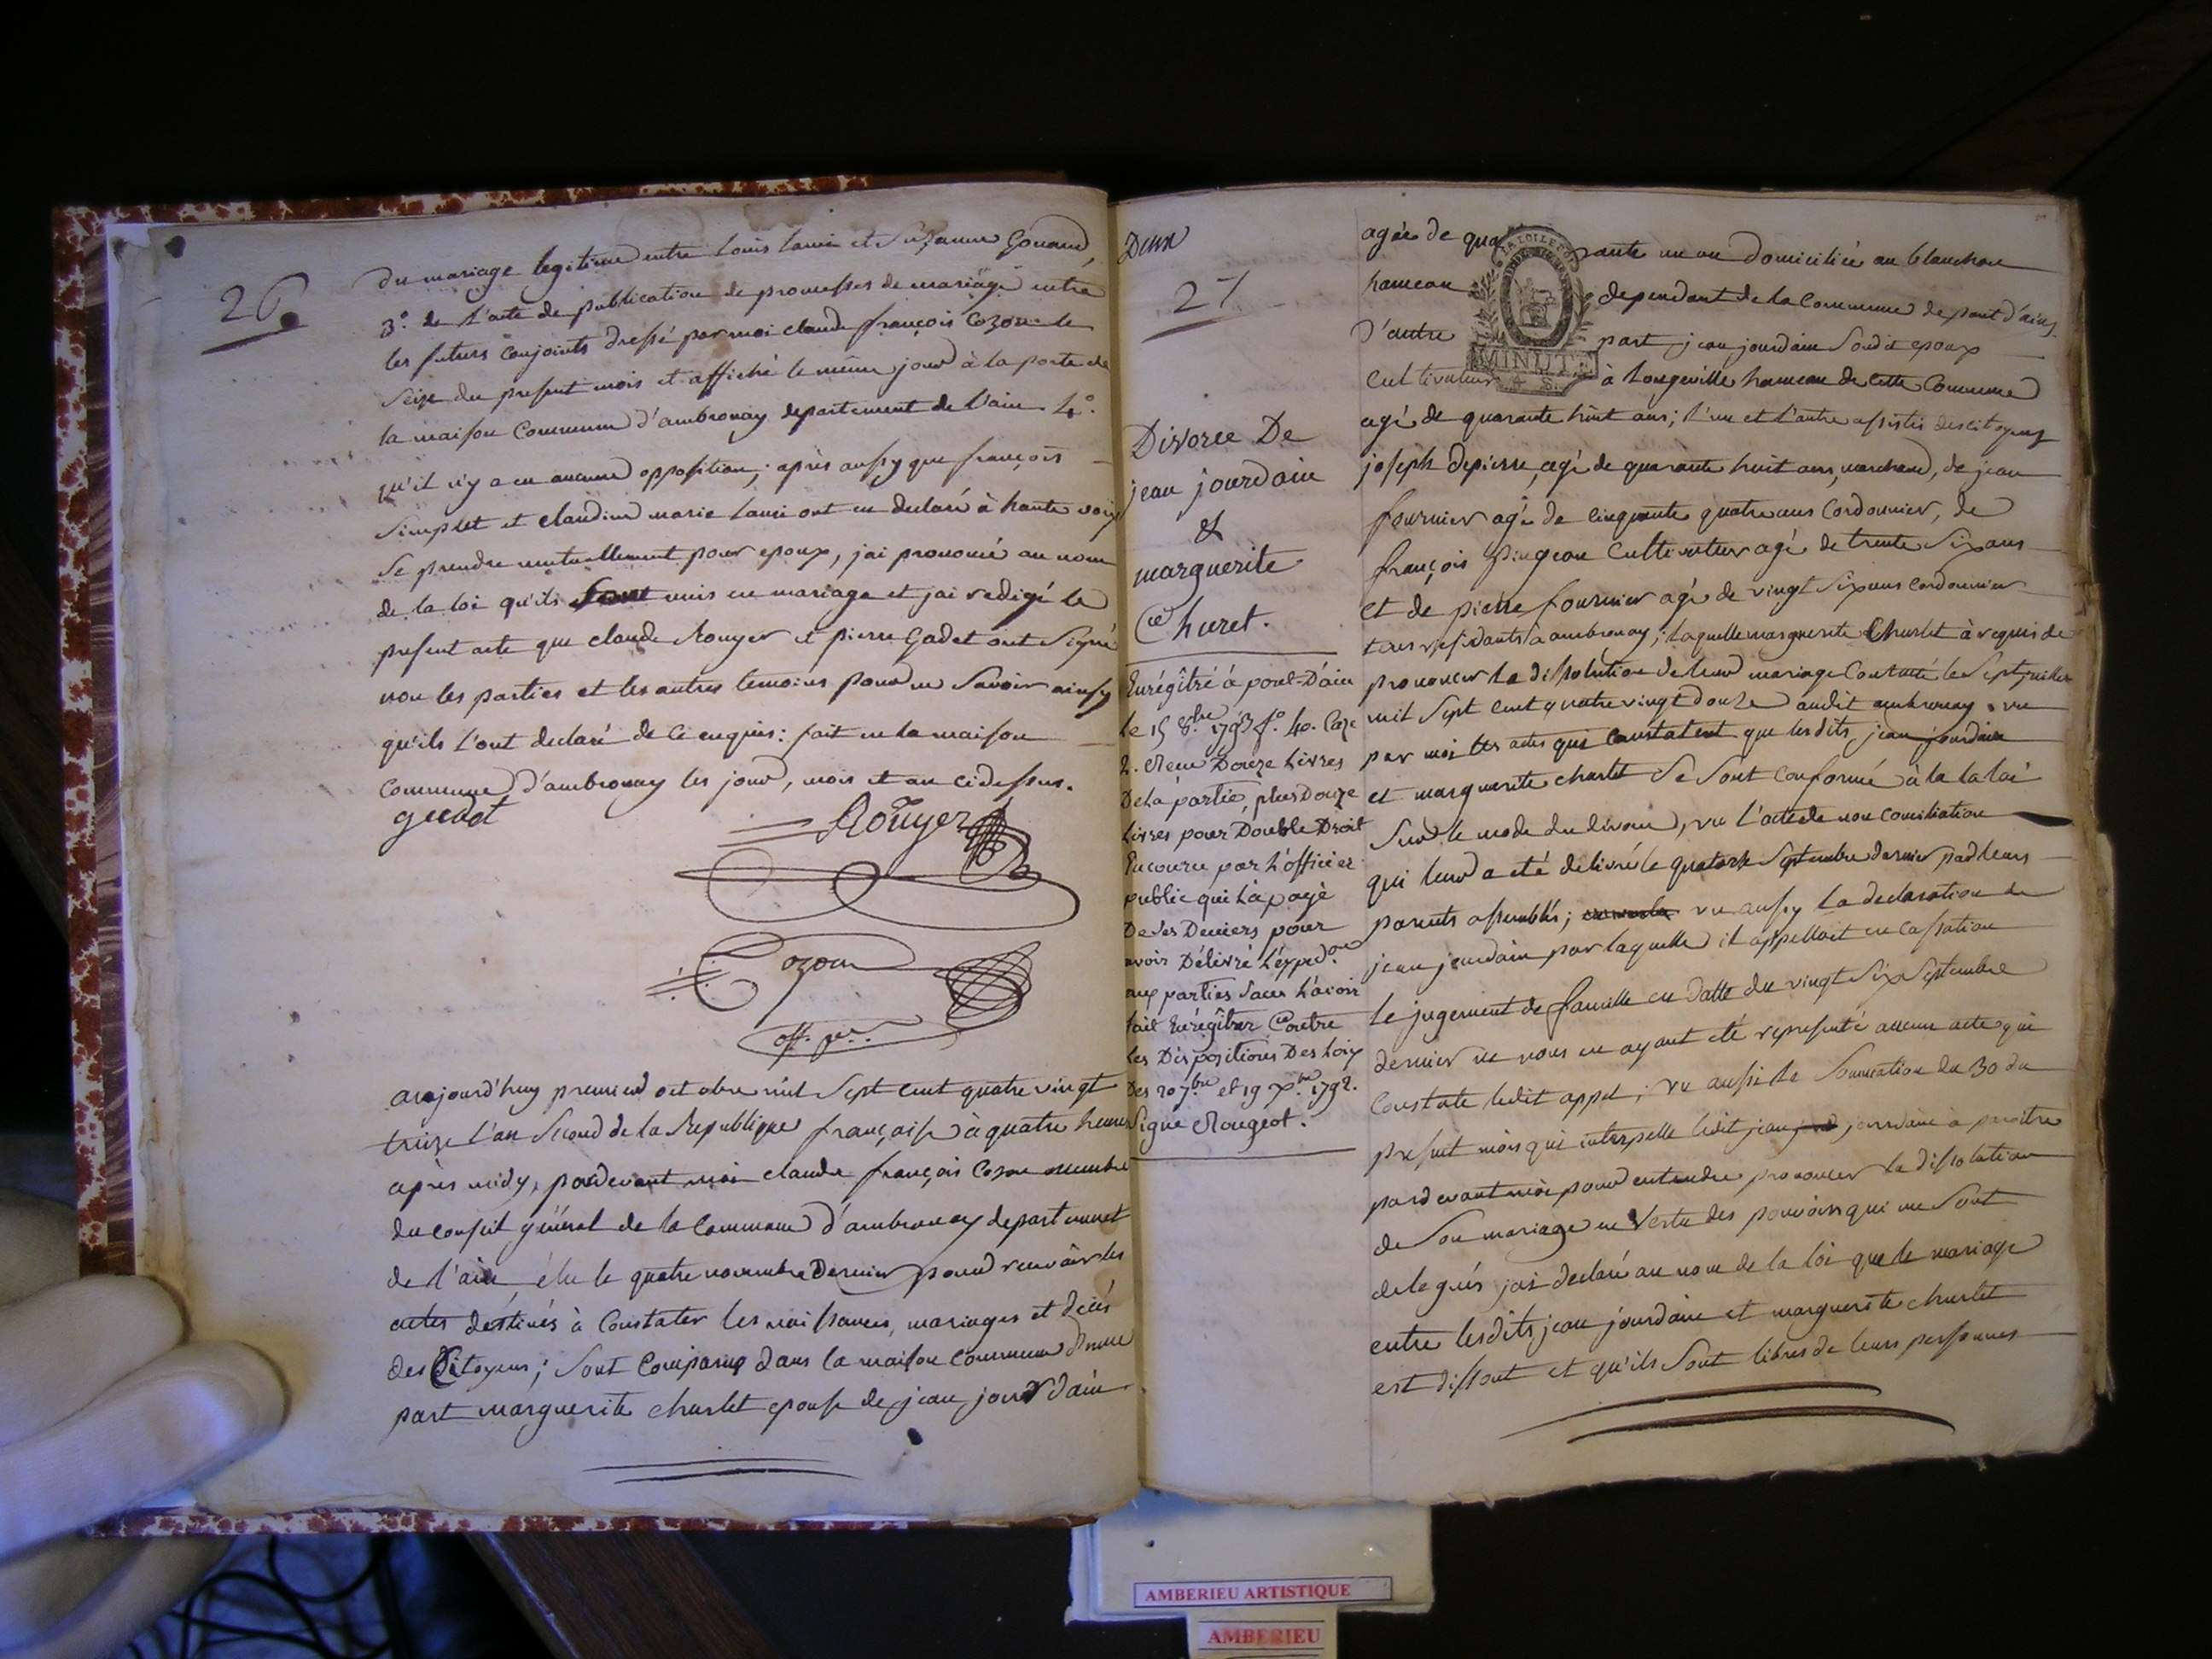 26.
du mariage legitime entre Louis Lanië et Suzanne Gonand,
3º. de l'acte de publication de promesses de mariage entre
les futurs conjoints dressé par moi claude françois Cozon le
seize du present mois et affiché le même jour à la porte de
la maison Commune d'ambronay departement de l'ain 4º.
qu'il n'y a eu aucune opposition; après aussy que françois
Simplet et claudine marie ont eu declaré à haute voix
se prendre mutuellement pour epoux, j'ai prononcé au nom
de la loi qu'ils sont unis en mariage et j'ai redigé le
present acte que claude Rouyer et pierre Gadet ont signé
non les parties et les autres temoins pour ne savoir ainsy
qu'ils l'ont declaré de ce enquis: fait en la maison
commune d'ambronay les jour, mois et an cidessus.
Rouyer
Cozon
off. p.
aujourd'huy premier octobre mil sept cent quatre vingt
treize l'an second de la Republique françaisse à quatre heures
après midy, pardevant moi claude françois Cozon membre
du conseil général de la Commune d'ambronay departement
de l'ain, élu le quatre novembre dernier pour recevoir les
actes déstinés à Constater les naissances, mariages et décés
des Citoyens; sont Comparus dans la maison commune d'une
part marguerite churlet epouse de jean jourdain
Deux
27
Divorce De
jean jourdain
&
marguerite
Churet.
Enrégîtré à pont-D'ain
le 15 8.bre 1793 fº. 40. Caze
2. Reçu Douze Livres
De la partie, plus Douze
Livres pour Double Droit
Encouru par L'officier
public qui L'à payé
De ses Deniers pour
avoir Délivré L'éxped.on
aux parties sans L'avoir
fait Enrégîtrer Contre
les Dispositions Des Loix
Des 20 7.bre et 19 X.bre 1792.
Signé Rougeot.
agée de quarante un an Domiciliée au blanchon
hameau dependant de la Commune de pont d'ains
D'autre part jean jourdain Soudit epoux
Cultivateur à Longeville hameau de cette Commune
agé de quarante huit ans; l'une et l'autre assistés des citoyens
joseph Depierre, agé de quarante huit ans, marchand, de jean
fournier agé de cinquante quatre ans Cordonnier, de
françois Pingeon Cultivateur agé de trente six ans
et de pierre fournier agé de vingt six ans cordonnier
tous residants à ambronay; laquelle marguerite Churlet à requis de
prononcer la dissolution de leur mariage Contracté le Sept juillet
mil Sept cent quatre vingt douze audit ambronay. vu
par moi les actes qui Constatent que les dits jean jourdain
et marguerite churlet se sont conformé à la la loi
sur le mode du divorce, vu l'acte de non conciliation
qui leur a eté delivré le quatorze septembre dernier par leurs
parents assemblés; vu aussy la declaration de
jean jourdain par laquelle il appelloit en cassation
le jugement de famille en datte du vingt six septembre
dernier ne nous en ayant eté representé aucun acte qui
Constate ledit appel; vu aussi la Sommation du 30 du
present mois qui interpelle ledit jean jourdain à paroitre
pardevant moi pour entendre prononcer la dissolution
de son mariage en Vertu des pouvoirs qui me sont
delegués j'ai declaré au nom de la loi que le mariage
entre lesdits jean jourdain et marguerite churlet
est dissout et qu'ils sont libres de leurs personnes
LA LOI LE ROI
MINUTE
4 S.
AMBERIEU ARTISTIQUE
AMBERIEU